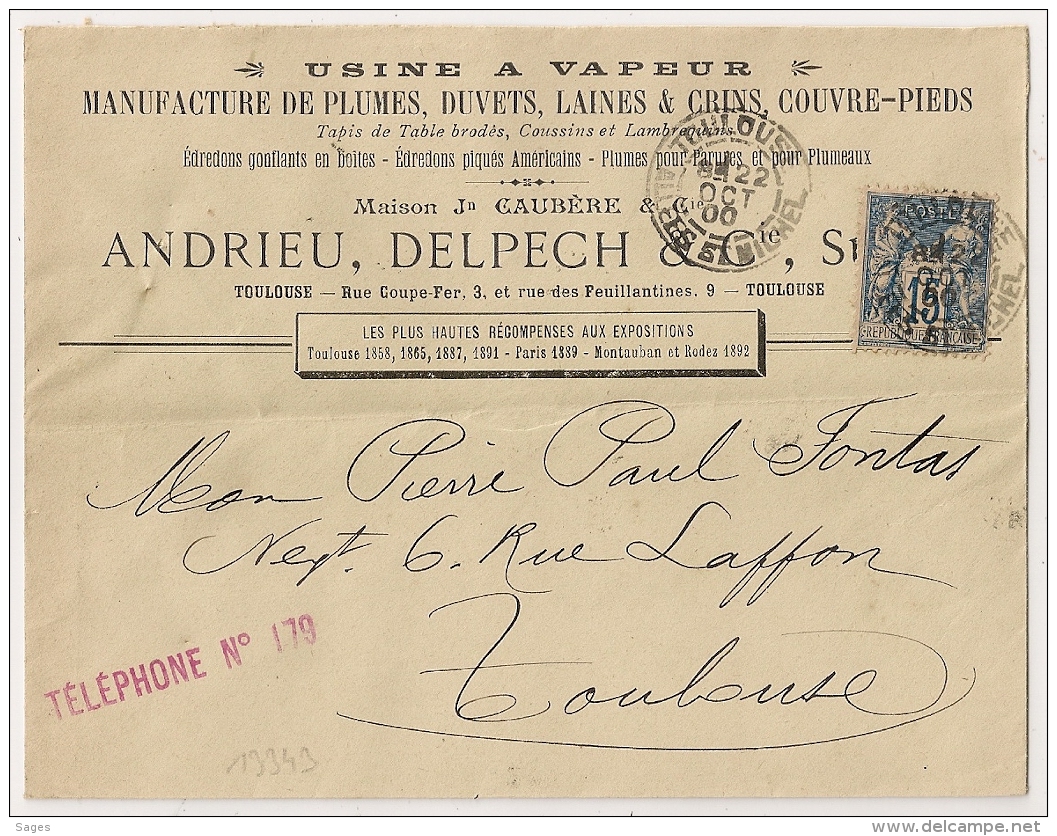 USINE A VAPEUR
MANUFACTURE DE PLUMES, DUVETS, LAINES & CRINS, COUVRE-PIEDS
Tapis de Table brodés, Coussins et Lambrequins
Édredons gonflants en boîtes - Édredons piqués Américains - Plumes pour Parures et pour Plumeaux
Maison Jn CAUBÈRE & Cie
ANDRIEU, DELPECH & Cie, S
TOULOUSE — Rue Coupe-Fer, 3, et rue des Feuillantines, 9 — TOULOUSE
LES PLUS HAUTES RÉCOMPENSES AUX EXPOSITIONS
Toulouse 1858, 1865, 1887, 1891 - Paris 1889 - Montauban et Rodez 1892
TOULOUSE
22
OCT
00
ST MICHEL
POSTE
15
REPUBLIQUE FRANÇAISE
Mon Pierre Paul Fontas
Negt. 6. Rue Laffon
Toulouse
TÉLÉPHONE N° 179
19343
Sages
www.delcampe.net